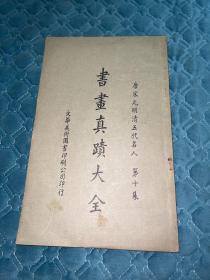 唐宋元明清五代名人 第十集
書畫真蹟大全
文華美術圖書印刷公司印行